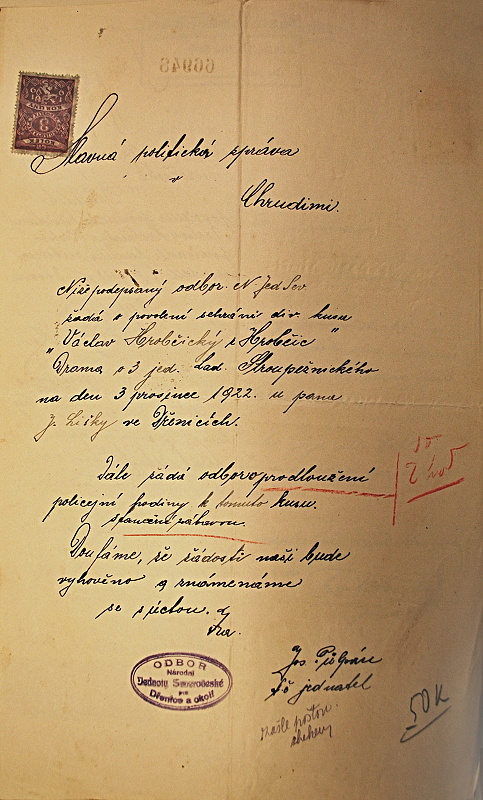 66948
6
Slavná politická správa
v
Chrudimi.
Níže podepsaný odbor N. Jed Sev
žádá o povolení sehrání div. kusu
"Václav Hrobčický z Hrobčic"
Drama o 3 jed. Lad. Stroupežnického
na den 3 prosince 1922. u pana
J. Lišky ve Dřenicích.
Dále žádá odbor o prodloužení
policejní hodiny k tomuto kusu.
taneční zábavou.
Doufáme, že žádosti naší bude
vyhověno a znamenáme
se s úctou.
Za.
Jos.
jednatel
ODBOR
Národní
Jednoty Severočeské
pro
Dřenice a okolí
50 K